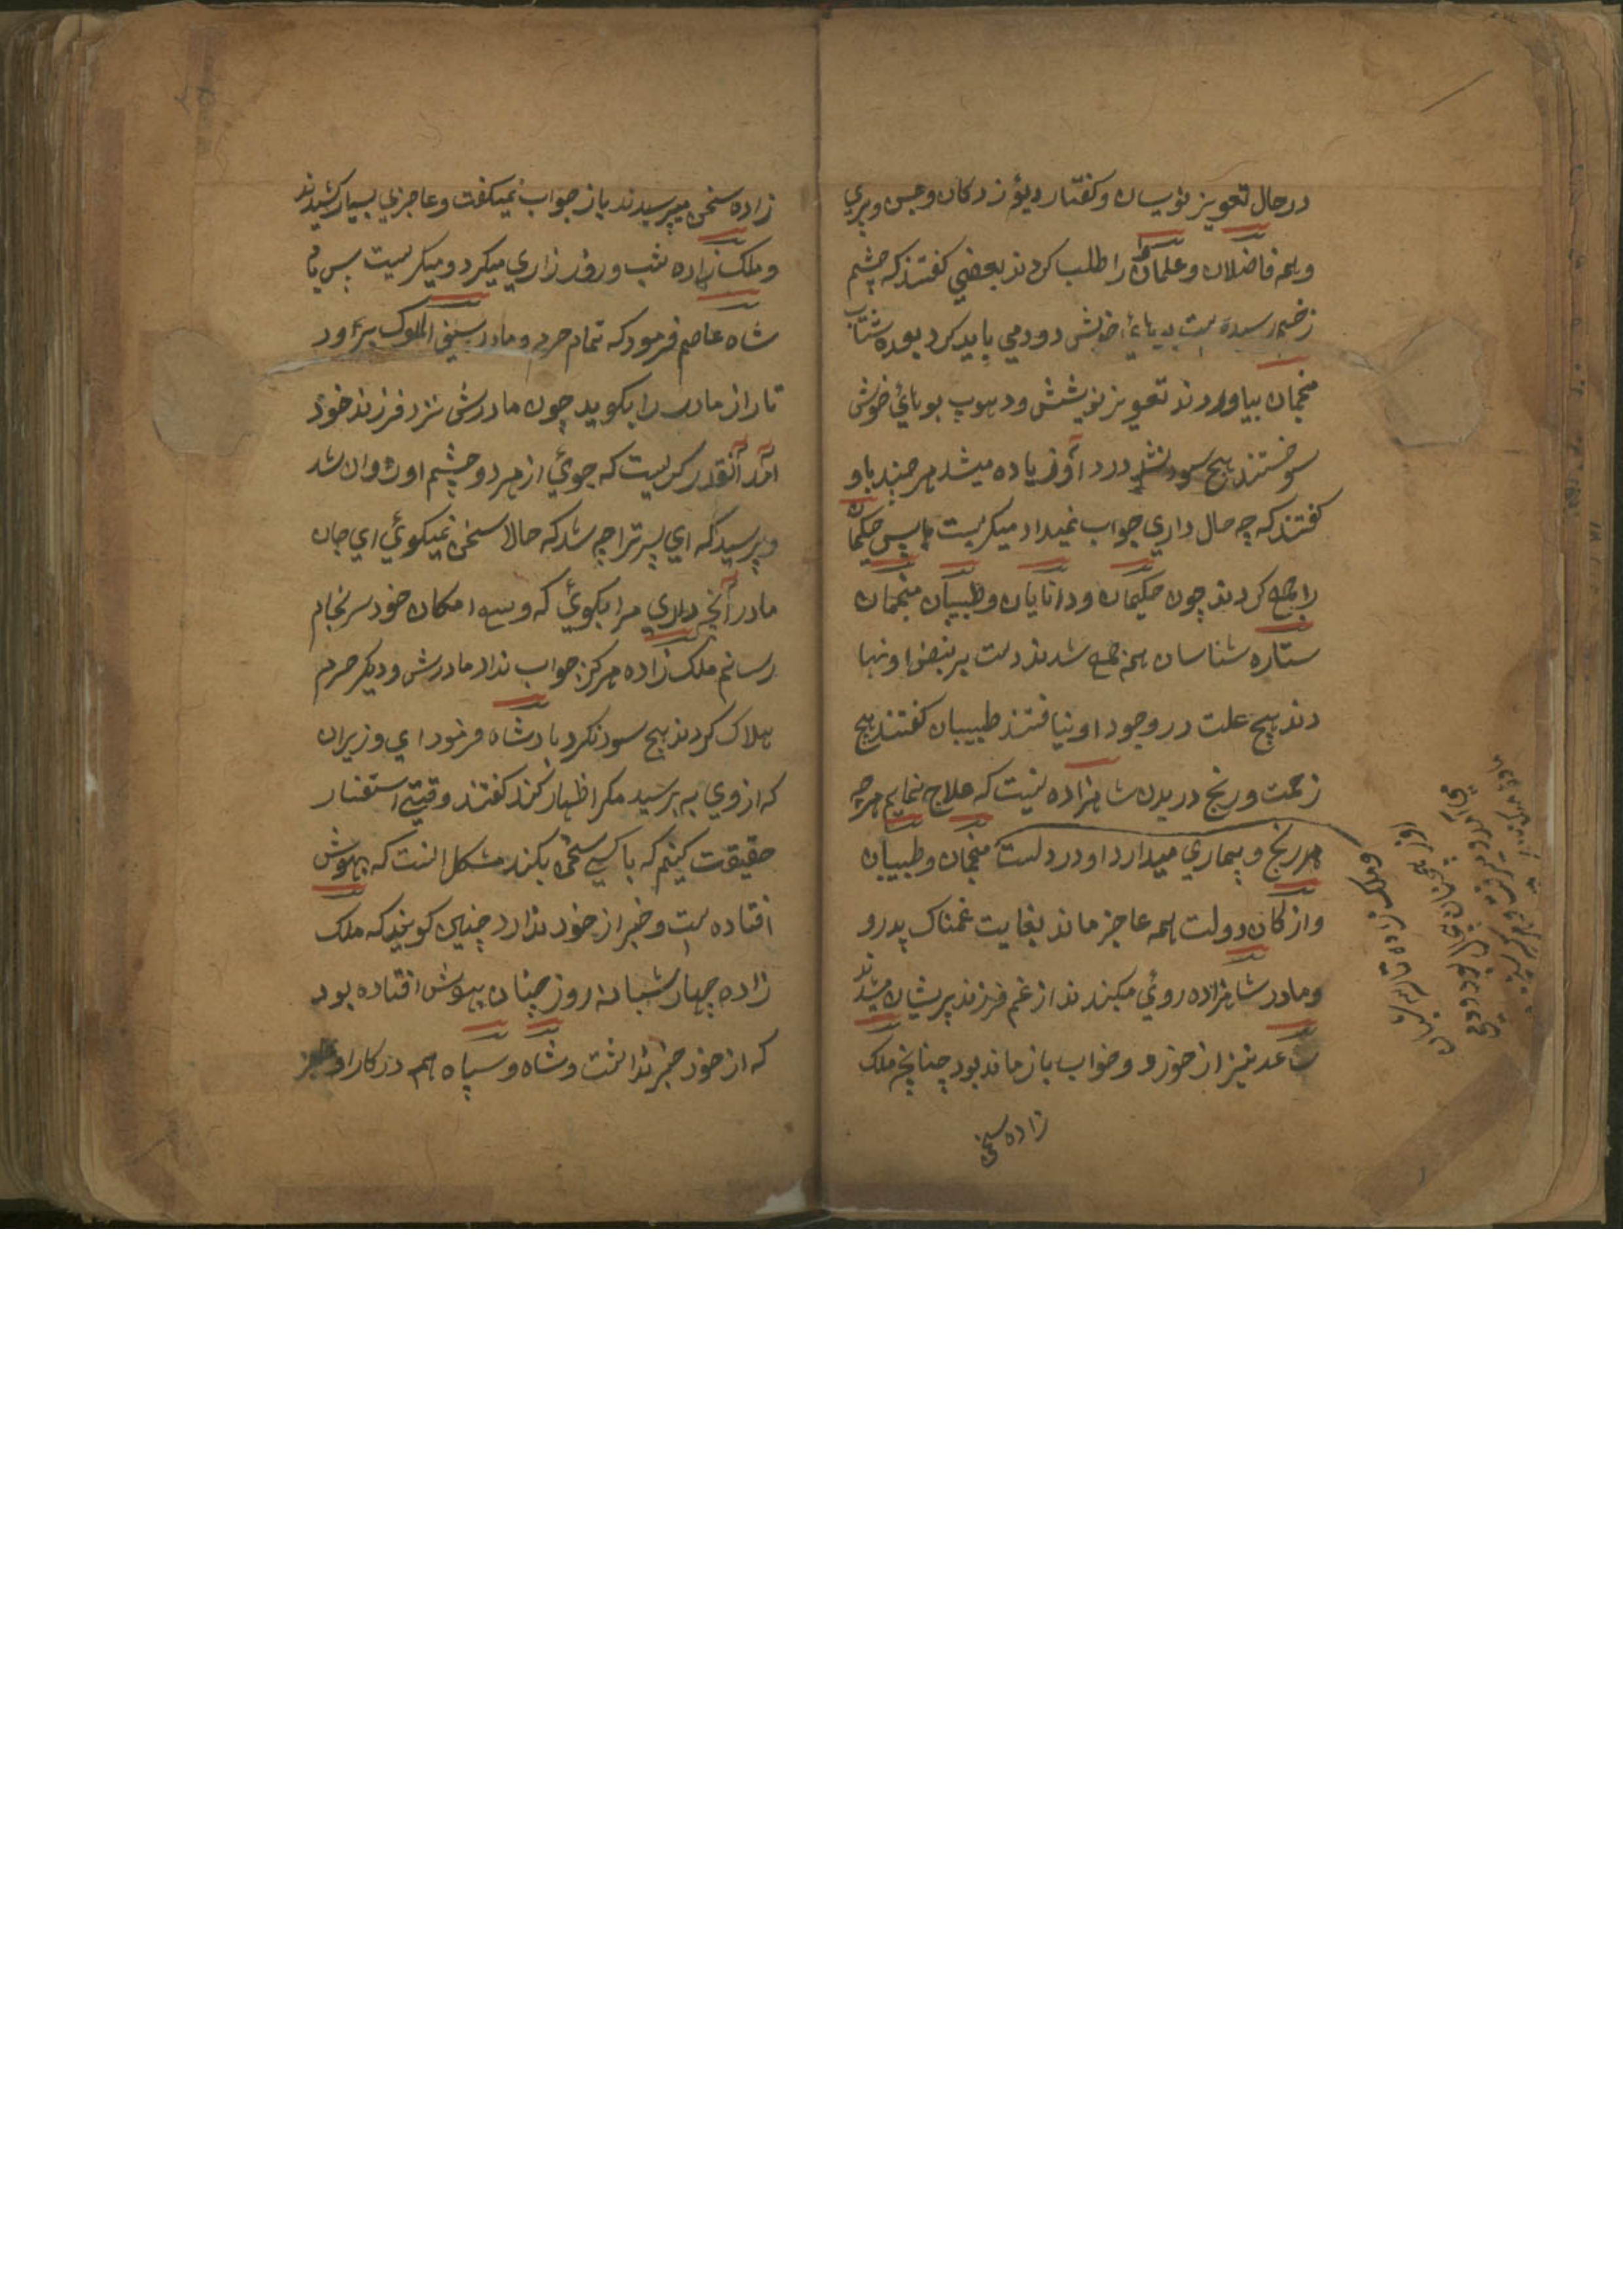 در حال تعویز نویسان و گفتار دیو زدکان و جن و پري
و همه فاضلان و علمان را طلب کردند بعضي گفتند که چشم
زخم رسیده است بویائ خوش دودمي باید کرد بعده شتاب
منجمان بیاوردند تعویز نوشتند و دهوپ بویائ خوش
سوختند هیچ سود نشد درد او زیاده میشد هر چند باو
گفتند که چه حال داري جواب نمیداد میگریست پس حکیمان
را جمع کردند چون حکیمان و دانایان و طبیبان منجمان
ستاره شناسان همه جمع شدند دست بر نبض او نها
دند هیچ علت در وجود او نیافتند طبیبان گفتند هیچ
زحمت و رنج در بدن شاهزاده نیست که علاج نمایم هر چه
هر رنج و بیماري میدارد او در دلست منجمان و طبیبان
و ارکان دولت همه عاجز ماندند بغایت غمناک پدر و
و مادر شاهزاده روئي میکندند از غم فرزند پریشان میشدند
ساعد نیز از خورد و خواب باز مانده بود چنانچه ملک
زاده سخن
و ملک زاده
زاده سخن میپرسیدند باز جواب نمیگفت و عاجزي بسیار کشیدند
و ملک زاده شب و روز زاري میکرد و میگریست پس باد
شاه عاصم فرمود که تمام حرم و مادر سیف الملوک بیاور
تا راز مادر را بگوید چون مادرش نزد فرزند خود
آمد آنقدر گریست که جوئي از هر دو چشم او روان شد
و پرسید که اي پسر ترا چه شد که حالا سخن نمیگوئي اي جان
مادر آنچه داري مرا بگوئي که وسع امکان خود سرنجام
رسانم ملک زاده هرگز جواب نداد مادرش و دیگر حرم
هلاک کردند هیچ سود نکرد بادشاه فرمود اي وزیران
که از وي به پرسید مگر اظهار کند گفتند وقتي استفسار
حقیقت کنیم که با کسي سخن بکند مشکل اینست که بیهوش
افتاده است و خبر از خود ندارد چنین گویند که ملک
زاده چهار شبانه روز چنان بیهوش افتاده بود
که از خود خبر نداشت و شاه و سپاه همه در کار او عاجز